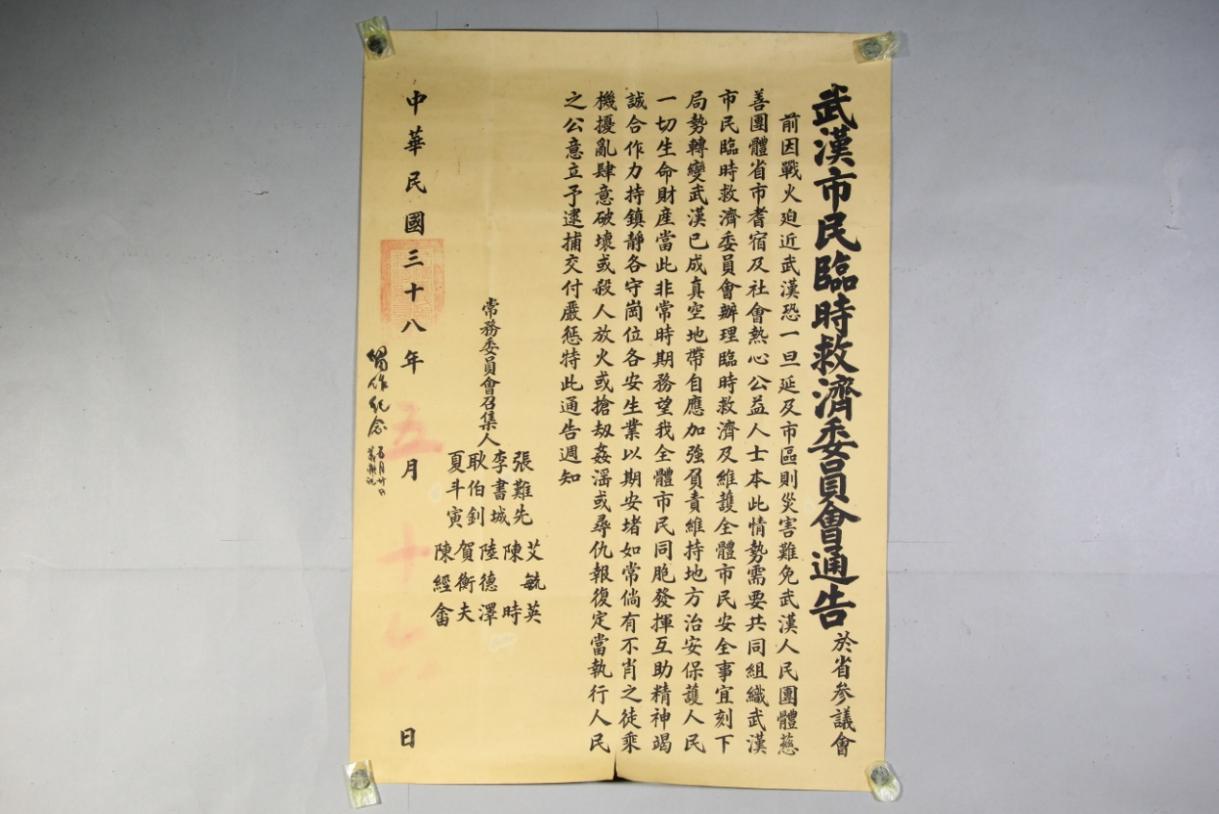 武漢市民臨時救濟委員會通告
於省參議會
前因戰火迫近武漢恐一旦延及市區則災害難免武漢人民團體慈
善團體省市耆宿及社會熱心公益人士本此情勢需要共同組織武漢
市民臨時救濟委員會辦理臨時救濟及維護全體市民安全事宜刻下
局勢轉變武漢已成真空地帶自應加強負責維持地方治安保護人民
一切生命財產當此非常時期務望我全體市民同胞發揮互助精神竭
誠合作力持鎮靜各守崗位各安生業以期安堵如常倘有不肖之徒乘
機擾亂肆意破壞或殺人放火或搶劫姦淫或尋仇報復定當執行人民
之公意立予逮捕交付嚴懲特此通告週知
常務委員會召集人
張難先
李書城
耿伯釗
夏斗寅
艾毓英
陳時
陸德澤
賀衡夫
陳經畬
中華民國三十八年五月十六日
留作紀念